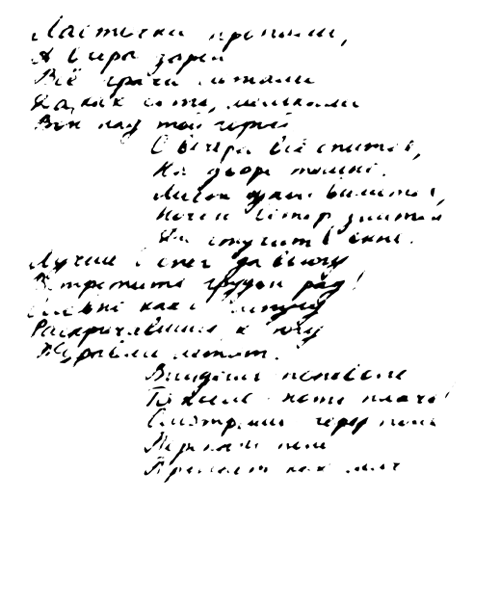 Ласточки пропали,
А вчера зарей
Всё грачи летали
Да, как сеть, мелькали
Вон над той горой
С вечера все спится,
На дворе темно.
Лист сухой валится,
Ночью ветер злится
Да стучит в окно.
Лучше б снег да вьюгу
Встретить грудью рад!
Словно как с испугу
Раскричавшись, к югу
Журавли летят.
Выйдешь поневоле
Тяжело хоть плачь!
Смотришь через поле
Перекати-поле
Прыгает как мяч